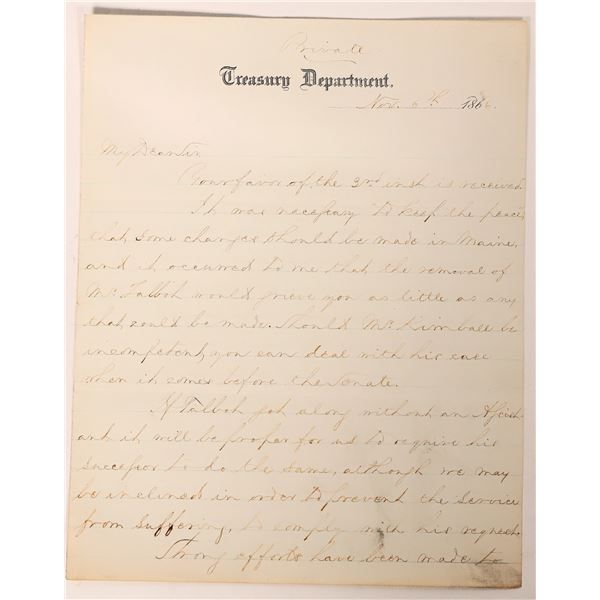 Private
Treasury Department.
Nov. 6th 1866.
My Dear Sir
Your favor of the 3rd inst is received.
It was necessary to keep the peace
that some changes should be made in Maine,
and it occurred to me that the removal of
Mr Talbot would grieve you as little as any
that could be made. Should Mr Kimball be
incompetent, you can deal with his case
when it comes before the Senate.
If Talbot got along without an Assist-
ant it will be proper for us to require his
successor to do the same, although we may
be inclined in order to prevent the service
from suffering, to comply with his request.
Strong efforts have been made to